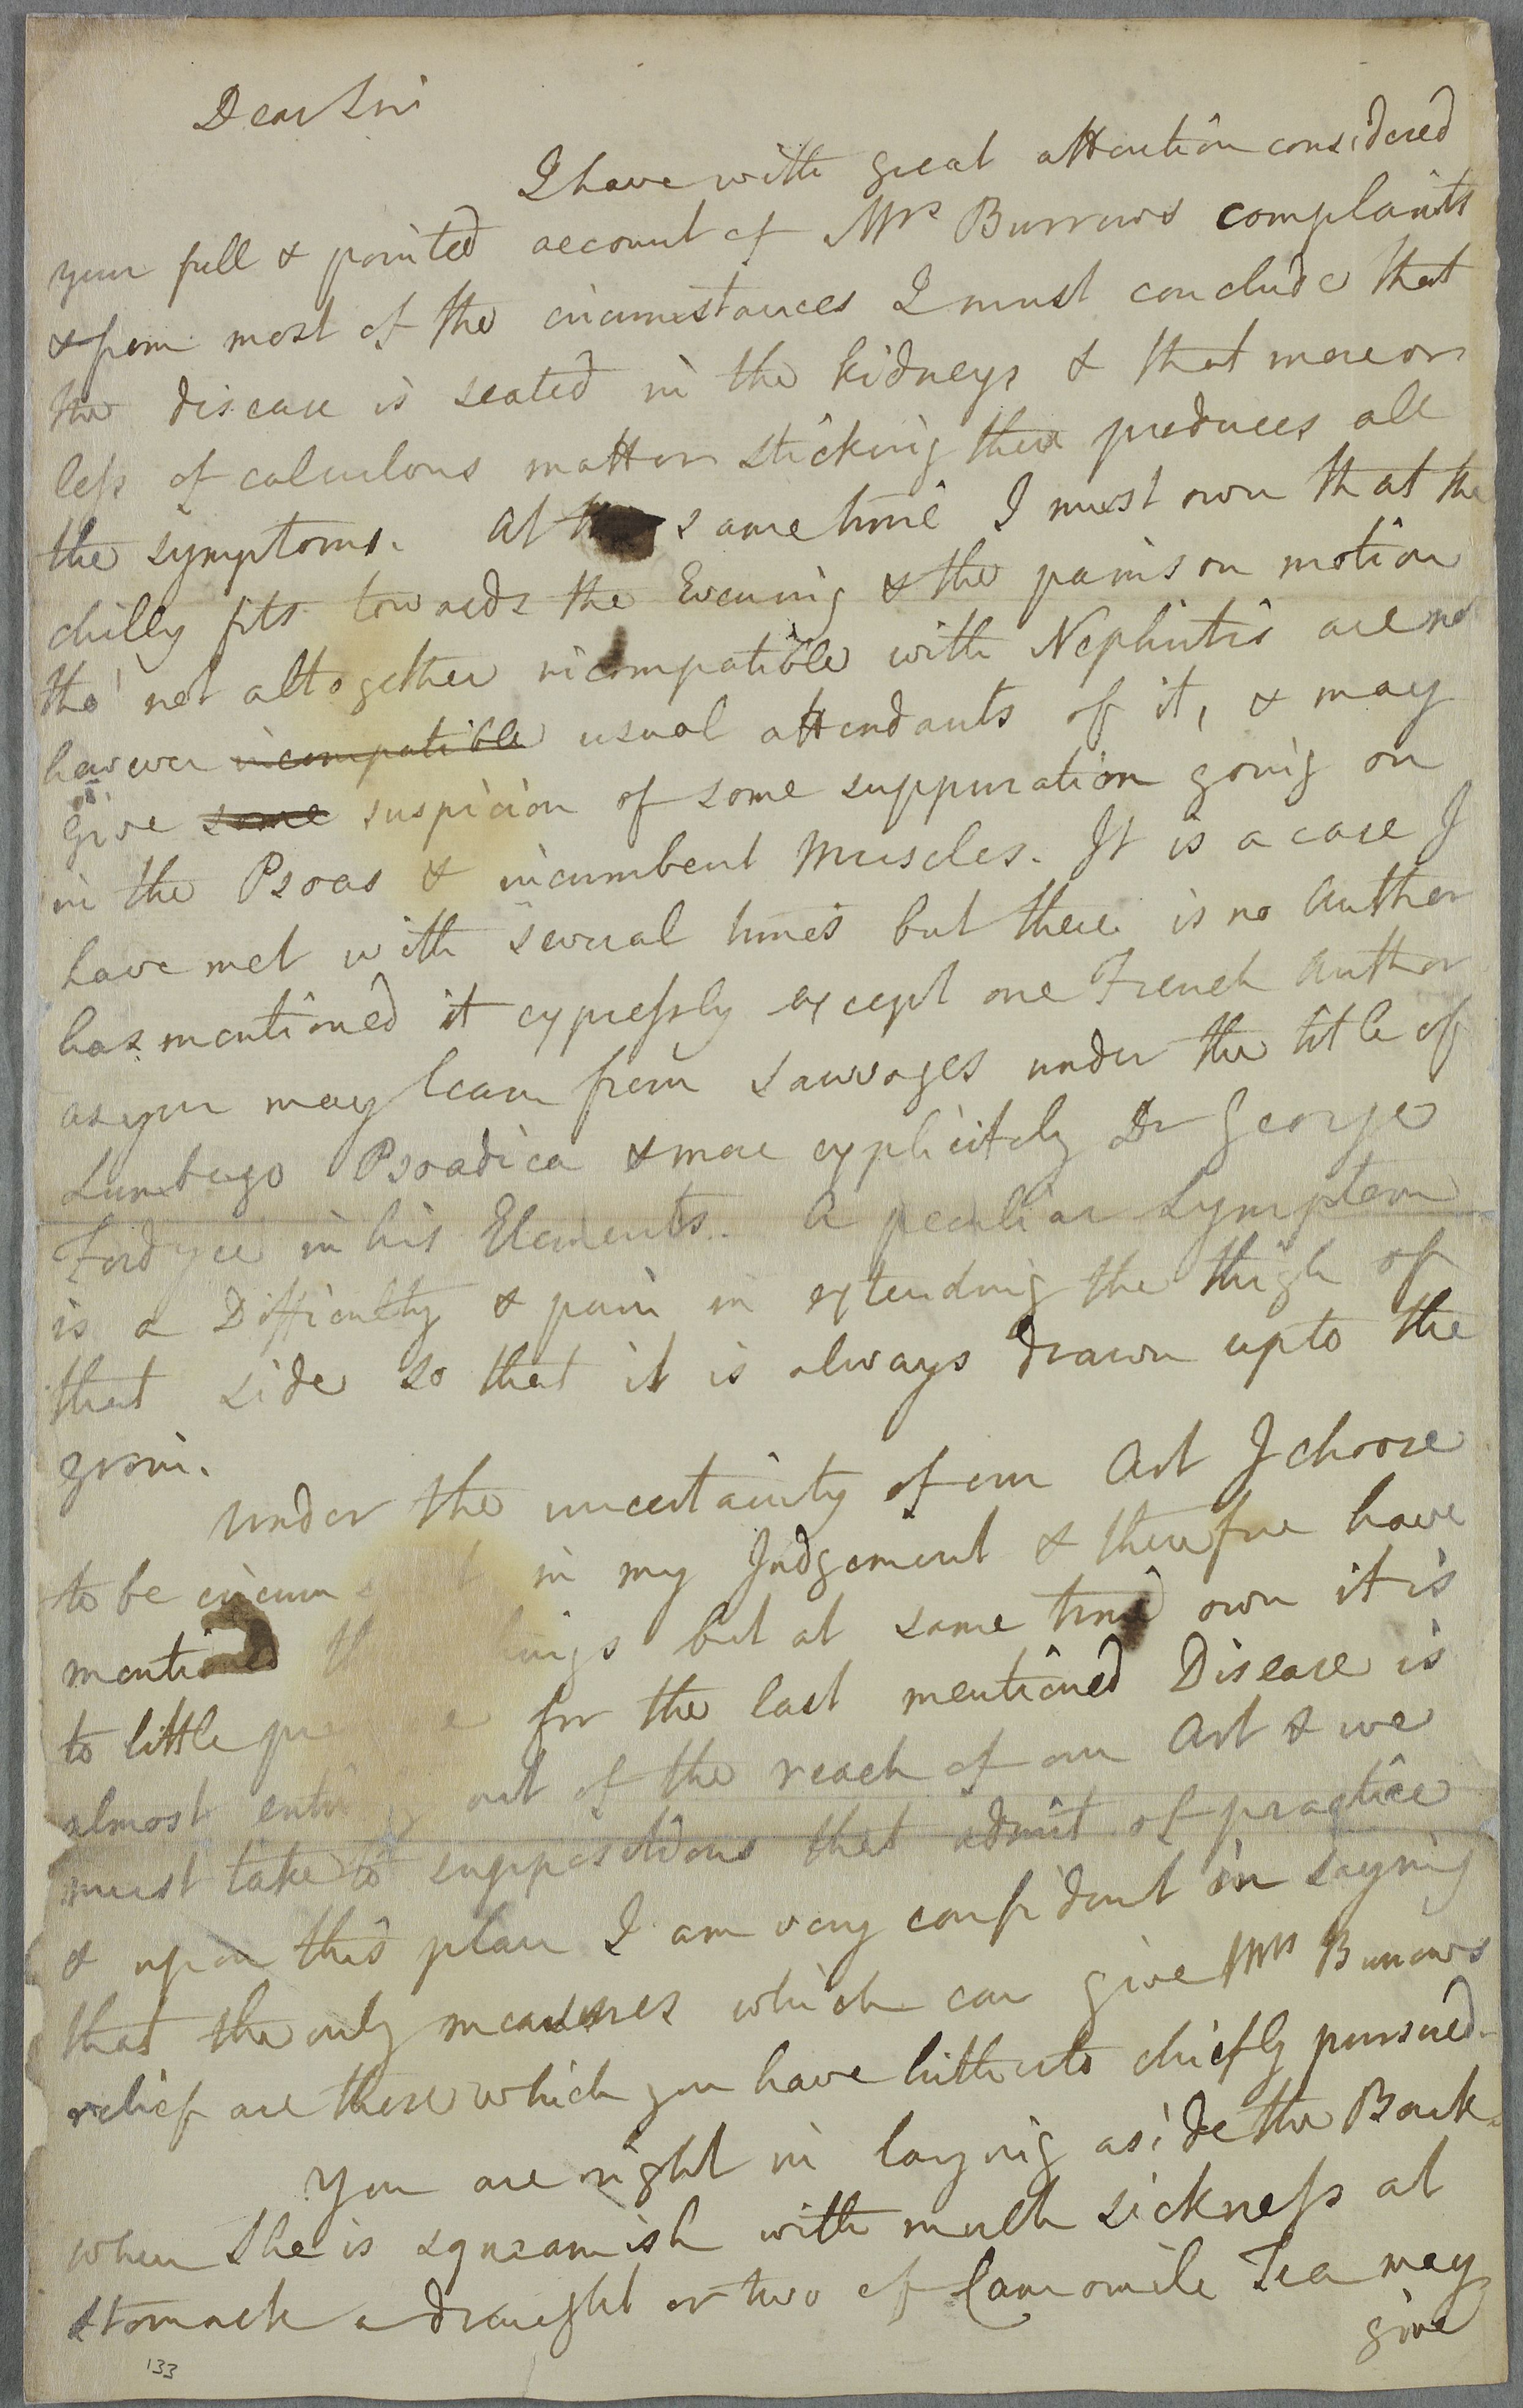 Dear Sir
I have with great attention considered
your full & pointed account of Mrs Burrows complaints
& from most of the circumstances I must conclude that
the disease is seated in the kidneys & that more or
less of calculous matter sticking there produces all
the symptoms. At same time I must own that the
chilly fits towards the Evening & the pains on motion
tho' not altogether incompatible with Nephritis are not
however incompatible usual attendants of it, & may
give some suspicion of some suppuration going on
in the Psoas & incumbent Muscles. It is a case I
have met with several times but there is no Author
has mentioned it expressly except one French Author
as you may learn from Sauvages under the title of
Lumbago Psoadica & more explicitely Dr George
Fordyce in his Elements. A peculiar Symptom
is a Difficulty & pain in extending the thigh of
that side so that it is always drawn up to the
groin.
Under the uncertainty of our Art I choose
to be in my Judgement & therefore have
mentioned but at same time own it is
to little for the last mentioned Disease is
almost out of the reach of our Art & we
must take to suppositions that admit of practice
& upon this plan I am very confident in saying
that the only measures which can give Mrs Burrows
relief are those which you have hitherto chiefly pursued.
You are right in laying aside the Bark.
when She is squeamish with much sickness at
stomach a draught or two of Camomile Tea may
give
133